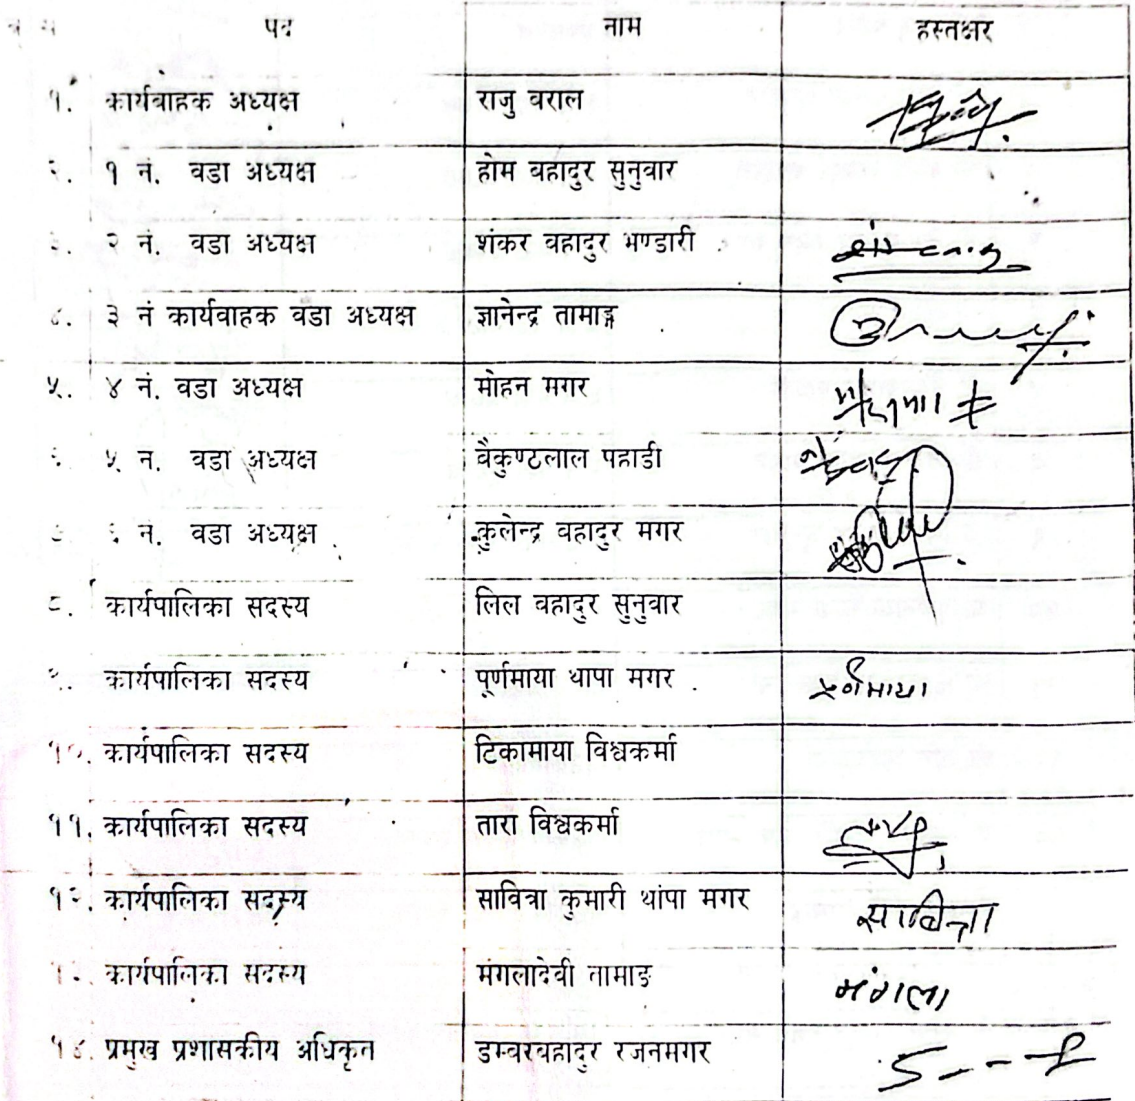 पद नाम हस्तक्षर
१. कार्यवाहक अध्यक्ष राजु वराल
२. १ नं. वडा अध्यक्ष होम वहादुर सुनुवार
२ नं. वडा अध्यक्ष शंकर वहादुर भण्डारी
३ नं कार्यवाहक वडा अध्यक्ष ज्ञानेन्द्र तामाङ्ग
५. ४ नं. वडा अध्यक्ष मोहन मगर
५ न. वडा अध्यक्ष वैकुण्टलाल पहाडी
६ नं. वडा अध्यक्ष कुलेन्द्र वहादुर मगर
८. कार्यपालिका सदस्य लिल वहादुर सुनुवार
कार्यपालिका सदस्य पूर्णमाया थापा मगर पूर्णमाया
१०. कार्यपालिका सदस्य टिकामाया विश्वकर्मा
११. कार्यपालिका सदस्य तारा विश्वकर्मा
१२. कार्यपालिका सदस्य सावित्रा कुमारी थापा मगर सावित्रा
कार्यपालिका सदस्य मंगलादेवी तामाङ मंगला
१४. प्रमुख प्रशासकीय अधिकृत डम्वरवहादुर रजनमगर